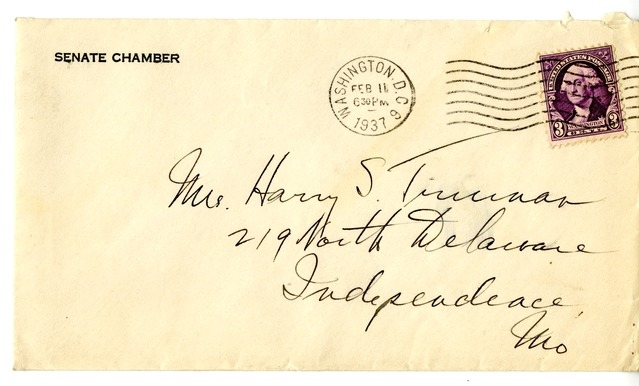 SENATE CHAMBER
WASHINGTON, D.C. 9
FEB 11
630 PM
1937
UNITED STATES POSTAGE
3 WASHINGTON 3
Mrs. Harry S. Truman
219 North Delaware
Independence
Mo